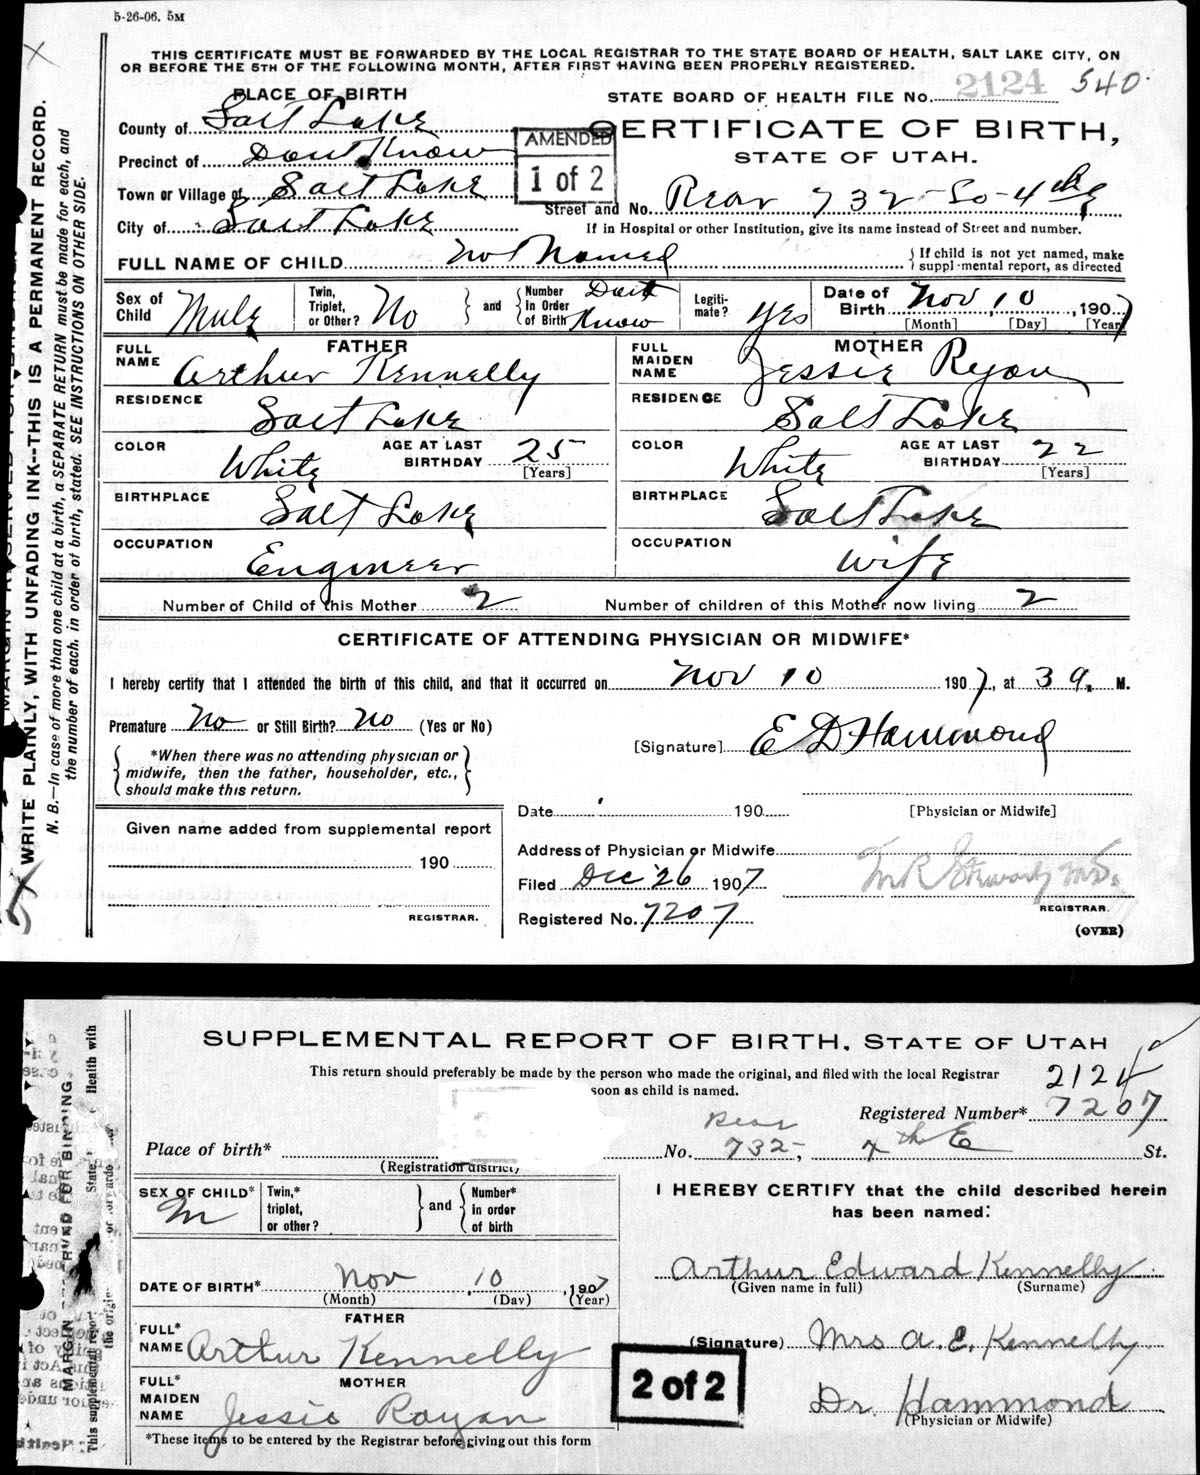 5-26-06. 5M
THIS CERTIFICATE MUST BE FORWARDED BY THE LOCAL REGISTRAR TO THE STATE BOARD OF HEALTH, SALT LAKE CITY, ON
OR BEFORE THE 5TH OF THE FOLLOWING MONTH, AFTER FIRST HAVING BEEN PROPERLY REGISTERED.
PLACE OF BIRTH
STATE BOARD OF HEALTH FILE No. 2124 540
County of Salt Lake
CERTIFICATE OF BIRTH,
STATE OF UTAH.
Precinct of Dont Know
AMENDED
1 of 2
Town or Village of Salt Lake
Street and No. Rear 732 So 4th E
City of Salt Lake
If in Hospital or other Institution, give its name instead of Street and number.
FULL NAME OF CHILD Not Named
If child is not yet named, make
supplemental report, as directed
Sex of Child Male
Twin, Triplet, or Other? No
and
Number in Order of Birth Dont Know
Legitimate? Yes
Date of Birth Nov 10, 1907
[Month] [Day] [Year]
FATHER
FULL NAME Arthur Kennelly
MOTHER
FULL MAIDEN NAME Jessie Ryan
RESIDENCE Salt Lake
RESIDENCE Salt Lake
COLOR White AGE AT LAST BIRTHDAY 25 [Years]
COLOR White AGE AT LAST BIRTHDAY 22 [Years]
BIRTHPLACE Salt Lake
BIRTHPLACE Salt Lake
OCCUPATION Engineer
OCCUPATION Wife
Number of Child of this Mother 2 Number of children of this Mother now living 2
CERTIFICATE OF ATTENDING PHYSICIAN OR MIDWIFE*
I hereby certify that I attended the birth of this child, and that it occurred on Nov 10 1907, at 3 a. M.
Premature No or Still Birth? No (Yes or No)
[Signature] E D Hammond
*When there was no attending physician or
midwife, then the father, householder, etc.,
should make this return.
Date 190
[Physician or Midwife]
Given name added from supplemental report
190
REGISTRAR.
Address of Physician or Midwife
Filed Dec 26 1907
REGISTRAR.
Registered No. 7207
(OVER)
WRITE PLAINLY, WITH UNFADING INK--THIS IS A PERMANENT RECORD.
N. B.—In case of more than one child at a birth, a SEPARATE RETURN must be made for each, and
the number of each, in order of birth, stated. SEE INSTRUCTIONS ON OTHER SIDE.
SUPPLEMENTAL REPORT OF BIRTH, STATE OF UTAH
This return should preferably be made by the person who made the original, and filed with the local Registrar
soon as child is named.
2124
Registered Number* 7207
Place of birth*
(Registration district)
Rear
No. 732, 4th E St.
SEX OF CHILD* M
Twin,* triplet, or other?
and
Number* in order of birth
I HEREBY CERTIFY that the child described herein
has been named:
DATE OF BIRTH* Nov, 10, 1907
(Month) (Day) (Year)
Arthur Edward Kennelly
(Given name in full) (Surname)
FATHER
FULL* NAME Arthur Kennelly
(Signature) Mrs A. E. Kennelly
MOTHER
FULL* MAIDEN NAME Jessie Rayan
2 of 2
Dr. Hammond
(Physician or Midwife)
*These items to be entered by the Registrar before giving out this form